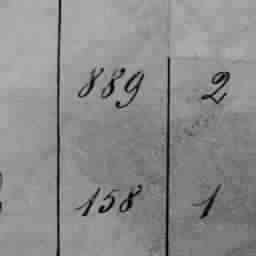 889 2
158 1